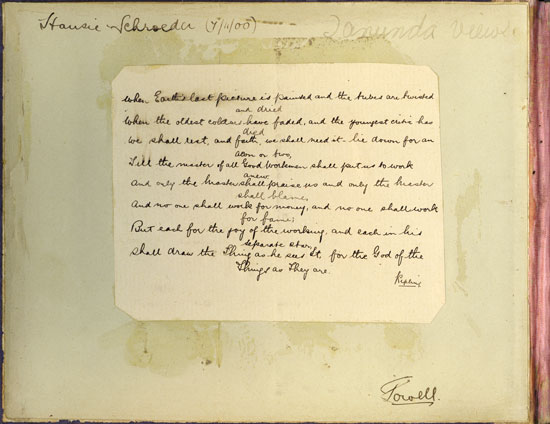 Hansie Schroeder (7/11/00)
Tanunda Views.
When Earth's last picture is painted and the tubes are twisted
and dried
When the oldest colours have faded, and the youngest critic has
died
We shall rest, and faith, we shall need it - lie down for an
aeon or two,
Till the master of all Good Workmen shall put us to work
anew
And only the Master shall praise us and only the Master
shall blame,
And no one shall work for money, and no one shall work
for fame;
But each for the joy of the working, and each in his
separate star,
Shall draw the Thing as he sees It, for the God of the
Things as They are.
Kipling
Powell.